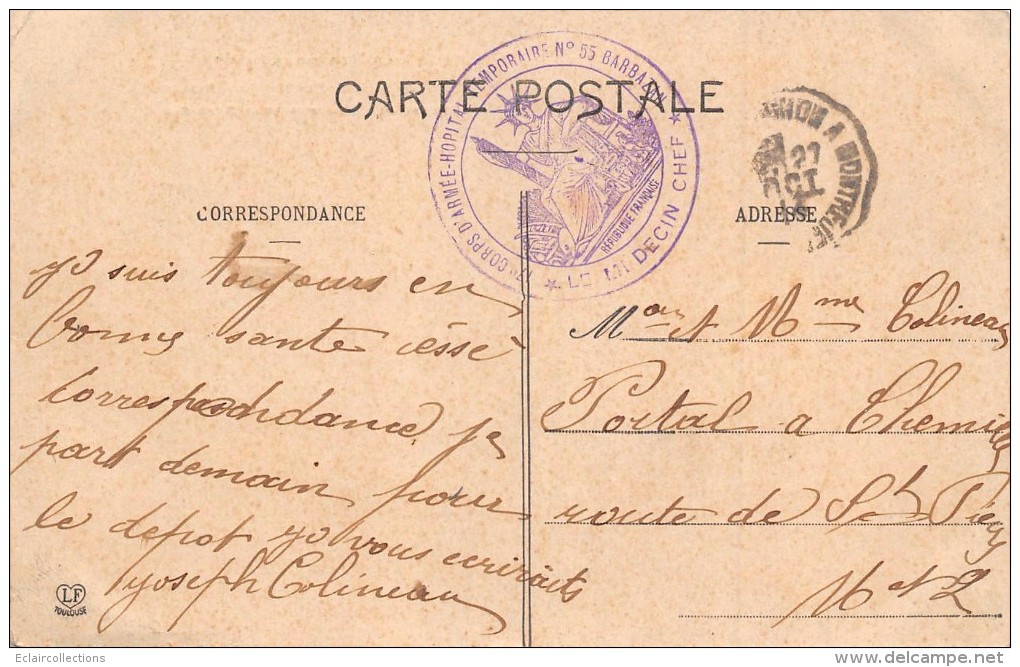 CARTE POSTALE
17e CORPS D'ARMÉE-HOPITAL TEMPORAIRE No 55 BARBAZAN
★ LE MÉDECIN CHEF ★
RÉPUBLIQUE FRANÇAISE
A MONTREJE
CORRESPONDANCE
yo suis toujours en
bonne sante cesse
correspondance je
part demain pour
le depot yo vous ecriraits
Joseph Colineau
LF
TOULOUSE
ADRESSE
Mour et Mme Colineau
Portal a Chemille
route de St
M et L
Eclaircollections
delcampe.net